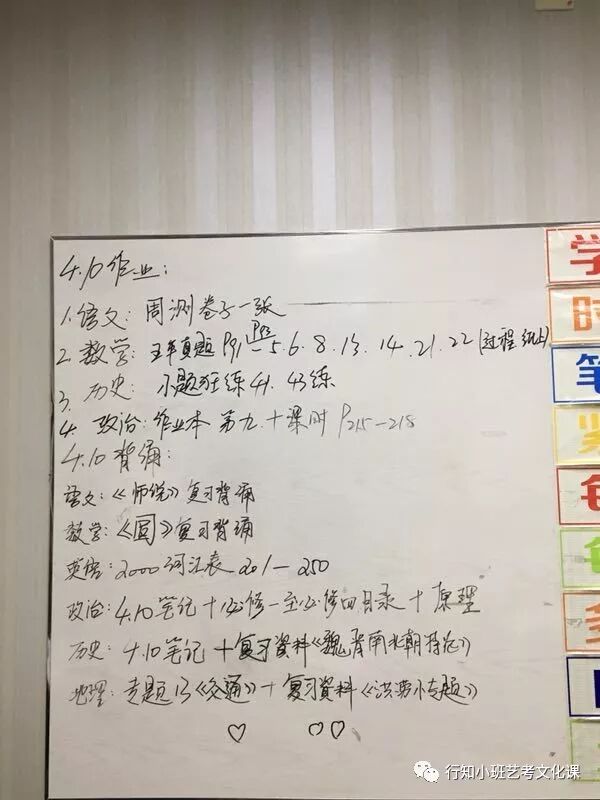 4.10作业:
1.语文: 周测卷子一张
2.数学: 五年真题 P91 P93 — 5.6.8.13.14.21.22 (过程纸上)
3.历史: 小题狂练41.43练
4.政治: 作业本 第九.十课时 P215—218
4.10背诵:
语文:《师说》复习背诵
数学:《圆》复习背诵
英语: 2000词汇表 201—250
政治: 4.10笔记+必修一至必修四目录+原理
历史: 4.10笔记+复习资料《魏晋南北朝特征》
地理: 专题13《交通》+复习资料《洪涝小专题》
学
时
笔
紧
行知小班艺考文化课